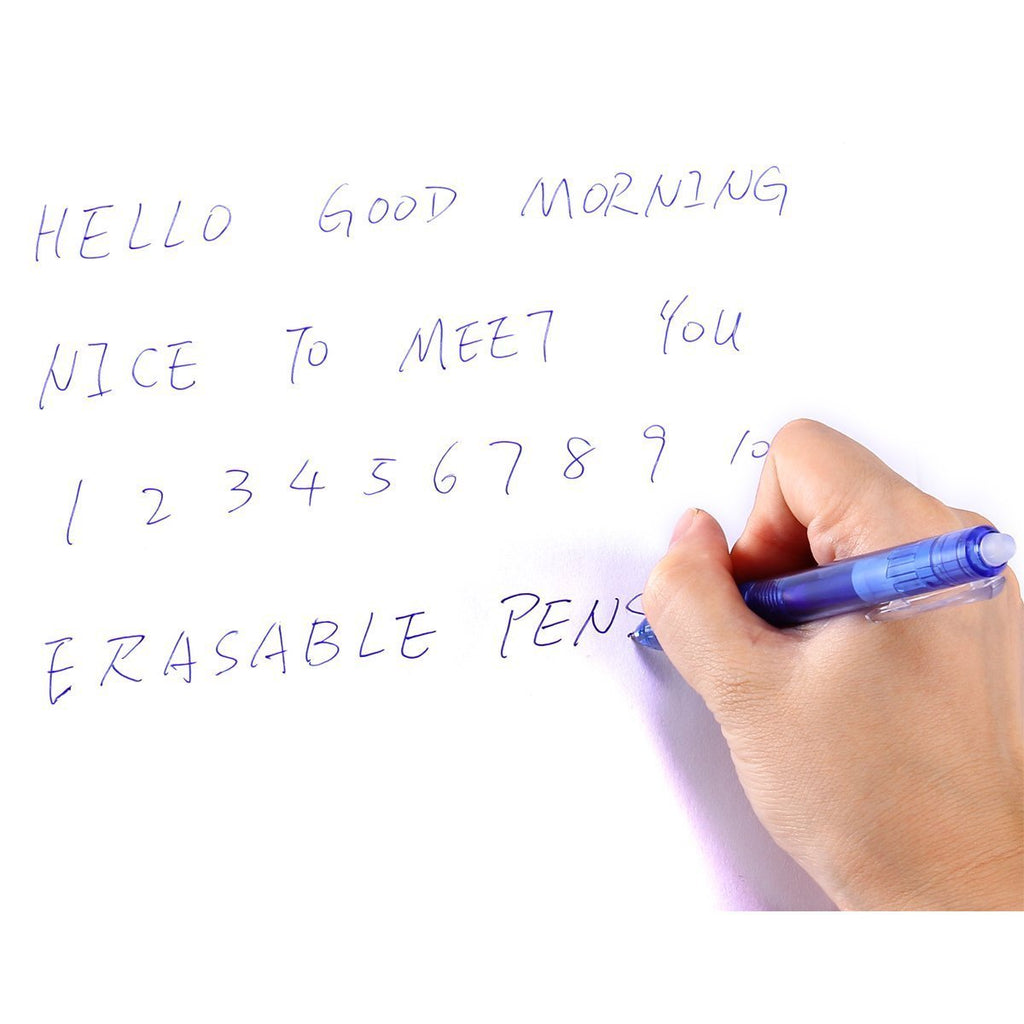 HELLO GOOD MORNING
NICE TO MEET YOU
1 2 3 4 5 6 7 8 9 10
ERASABLE PENS